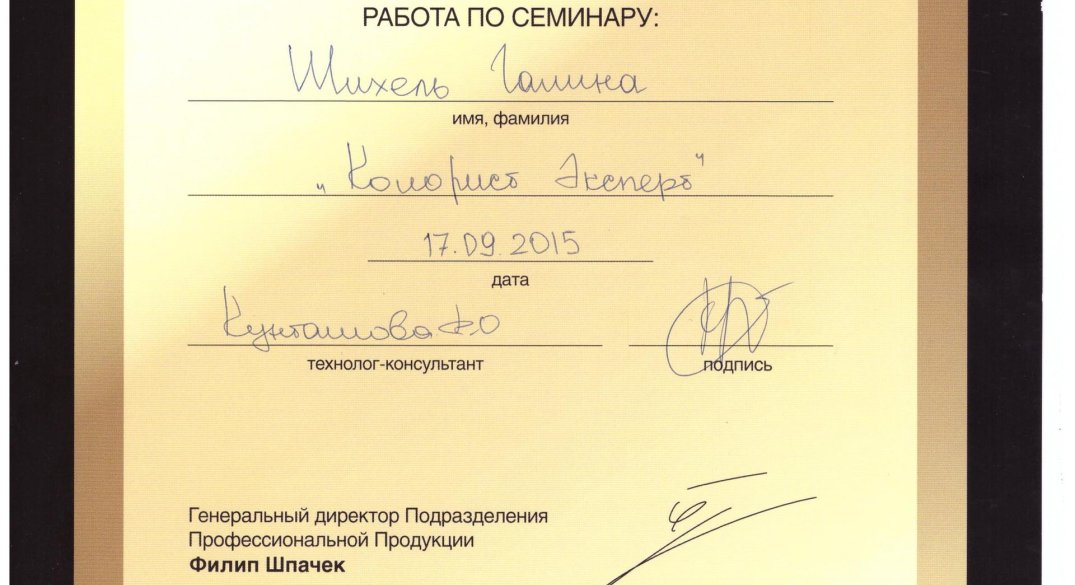 РАБОТА ПО СЕМИНАРУ:
Шихель Галина
имя, фамилия
"Колорист Эксперт"
17.09.2015
дата
технолог-консультант
подпись
Генеральный директор Подразделения
Профессиональной Продукции
Филип Шпачек